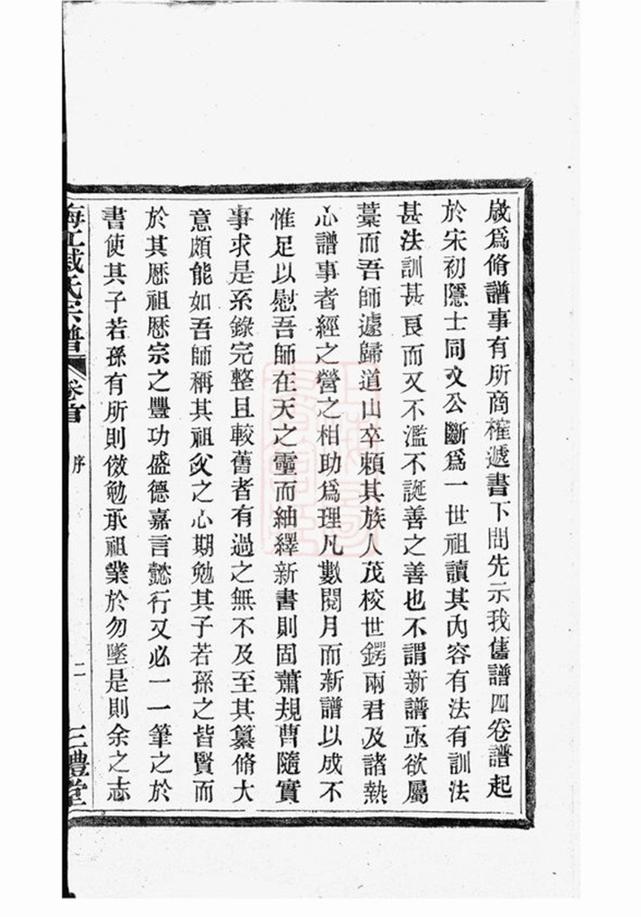 歲爲脩譜事有所商榷遞書下問先示我舊譜四卷譜起
於宋初隱士同文公斷爲一世祖讀其內容有法有訓法
甚法訓甚良而又不濫不誕善之善也不謂新譜亟欲屬
藁而吾師遽歸道山卒賴其族人茂校世鍔兩君及諸熱
心譜事者經之營之相助爲理凡數閱月而新譜以成不
惟足以慰吾師在天之靈而紬繹新書則固蕭規曹隨實
事求是系錄完整且較舊者有過之無不及至其纂脩大
意頗能如吾師稱其祖父之心期勉其子若孫之皆賢而
於其歷祖歷宗之豐功盛德嘉言懿行又必一一筆之於
書使其子若孫有所則傚勉承祖業於勿墜是則余之志
海江戚氏宗譜 卷首 序 二 三禮堂